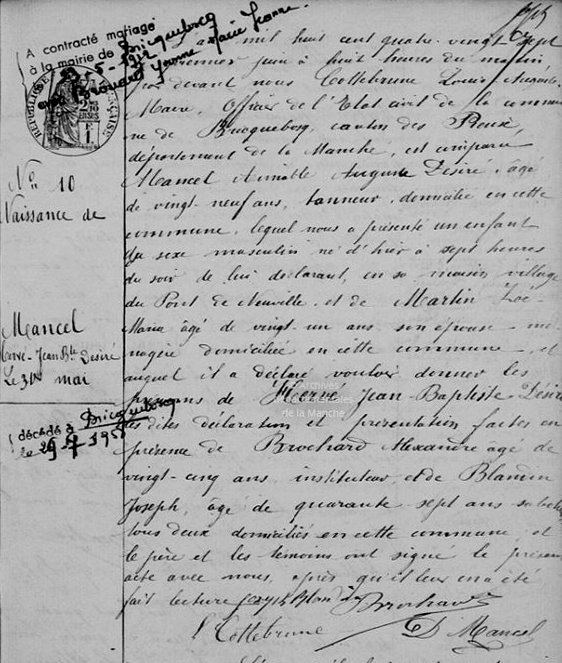 A contracté mariage
à la mairie de Bricquebosq
avec Brouard Yvonne Marie Jeanne
RÉPUBLIQUE FRANÇAISE
Nº 10
Naissance de
Mancel
Hervé-Jean Bte Désiré
Le 31 mai
décédé à Bricquebosq
le
mil huit cent quatre-vingt sept
premier juin à huit heures du matin
par devant nous Cottebrune Louis Auguste
Maire, Officier de l'Etat civil de la commu
ne de Bricquebosq, canton des Pieux,
département de la Manche, est comparu
Mancel Aimable Auguste Désiré, âgé
de vingt-neuf ans, tanneur, domicilié en cette
commune, lequel nous a présenté un enfant
du sexe masculin né d'hier à sept heures
du soir de lui déclarant, en sa maison village
du Pont de Neuville, et de Martin
Maria âgé de vingt-un ans son épouse mé-
nagère domiciliée en cette commune, et
auquel il a déclaré vouloir donner les
prénoms de Hervé Jean-Baptiste Désiré
les dites déclaration et présentation faites en
présence de Brochard Alexandre âgé de
vingt-cinq ans, instituteur, et de Blandin
Joseph, âgé de quarante-sept ans
tous deux domiciliés en cette commune, et
le père et les témoins ont signé le présent
acte avec nous, après qu'il leur en a été
fait lecture Brochard
L Cottebrune D Mancel
Archives
départementales
de la Manche